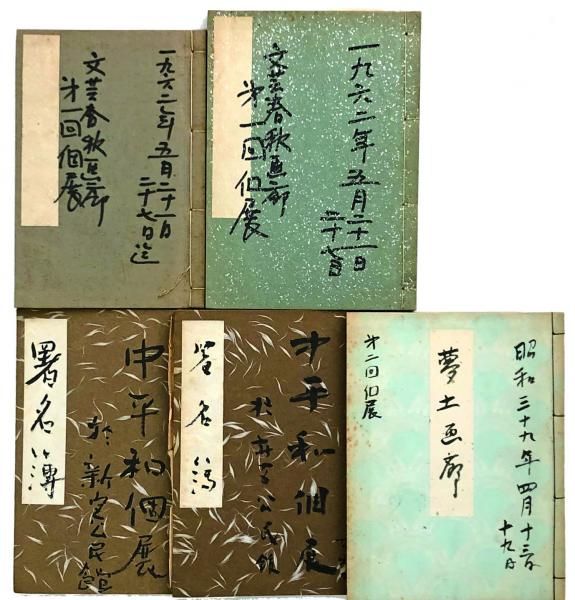 一九六二年五月二十一日
二十七日迄
文芸春秋画廊
第一回個展
一九六二年五月二十一日
二十七日
文芸春秋画廊
第一回個展
中平和個展
於新宮公民館
署名簿
平和個展
公民館
署名簿
昭和三十九年四月十三日
十九日
夢土画廊
第二回個展